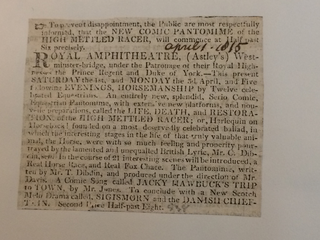 To prevent disappointment, the Public are most respectfully
informed, that the NEW COMIC PANTOMIME of the
HIGH METTLED RACER, will commence at Half-past
Six precisely.
april 1. 1815
ROYAL AMPHITHEATRE, (Astley's) West-
minster-bridge, under the Patronage of their Royal High-
nesses the Prince Regent and Duke of York.—This present
SATURDAY the 1st, and MONDAY the 3d April, and Five
following EVENINGS, HORSEMANSHIP by Twelve cele-
brated Equestrians. An entirely new, splendid, Serio Comic,
Equestrian Pantomime, with extensive new platforms, and
penorio preparations, called the LIFE, DEATH, and RESTORA-
TION of the HIGH METTLED RACER; or, Harlequin on
Horseback; founded on a most deservedly celebrated ballad, in
which the interesting stages in the life of that truly valuable ani-
mal, the Horse, were with so much feeling and poetry pour-
trayed by the lamented and unequalled British Lyric, Mr. C. Dib-
din, sen. In the course of 21 interesting scenes will be introduced, a
Real Horse Race, and Real Fox Chace. The Pantomime, writ-
ten by Mr. T. Dibdin, and produced under the direction of Mr.
Davis. A Comic Song called JACKY MAWBUCK'S TRIP
to TOWN, by Mr. Jones. To conclude with a New Scotch
Melo Drama called, SIGISMORN and the DANISH CHIEF-
TAIN. Second Price Half-past Eight.